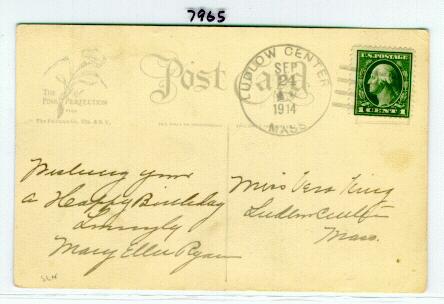 7965
THE
PINK OF PERFECTION
Post Card
LUDLOW CENTER
SEP
21
1914
MASS
U.S. POSTAGE
1 CENT 1
Wishing you
a Happy Birthday
Lovingly
Mary Ellen Ryan
Miss Vera King
Ludlow Center
Mass.